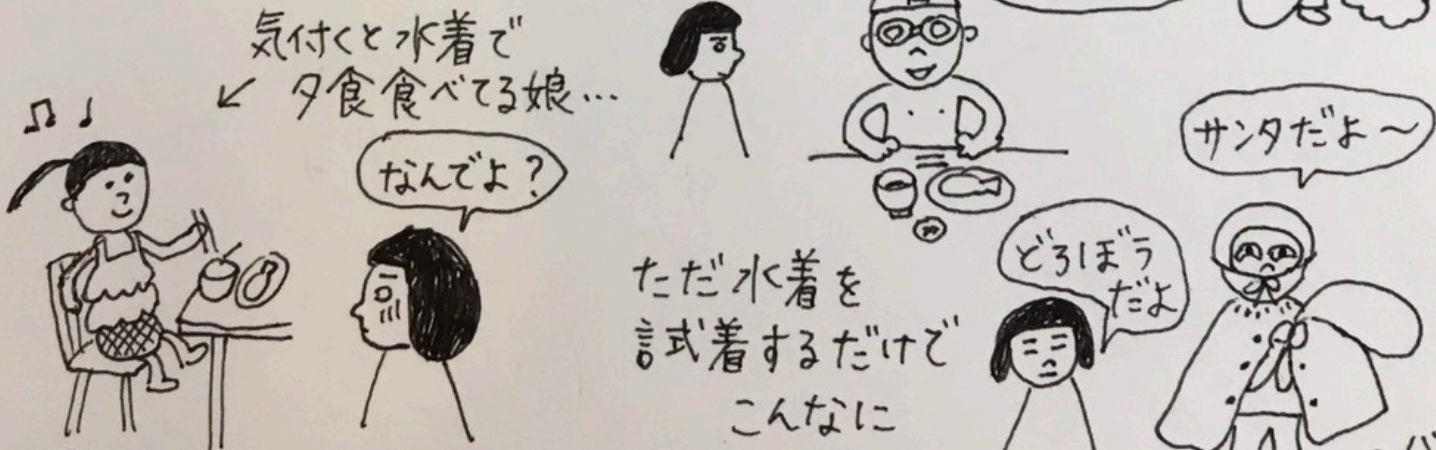 気付くと水着で
夕食食べてる娘…
なんでよ?
ただ水着を
試着するだけで
こんなに
サンタだよ～
どろぼう
だよ